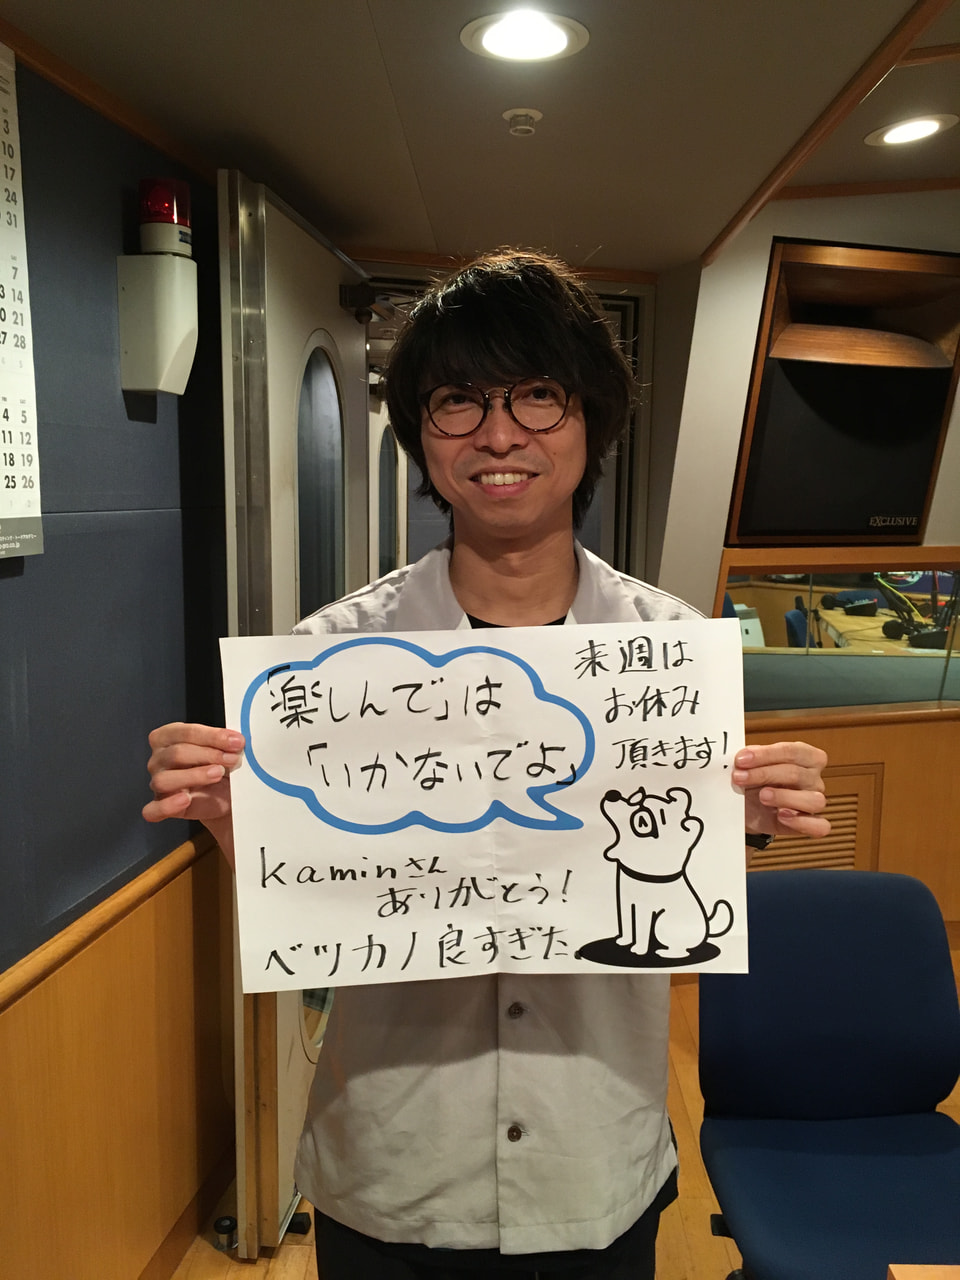 「楽しんで」は
「いかないでよ」
来週は
お休み
頂きます!
kaminさん
ありがとう!
ベツカノ良すぎた.
EXCLUSIVE
3
10
17
24
31
7
14
21
27 28
FRI SAT
4 5
11 12
18 19
25 26